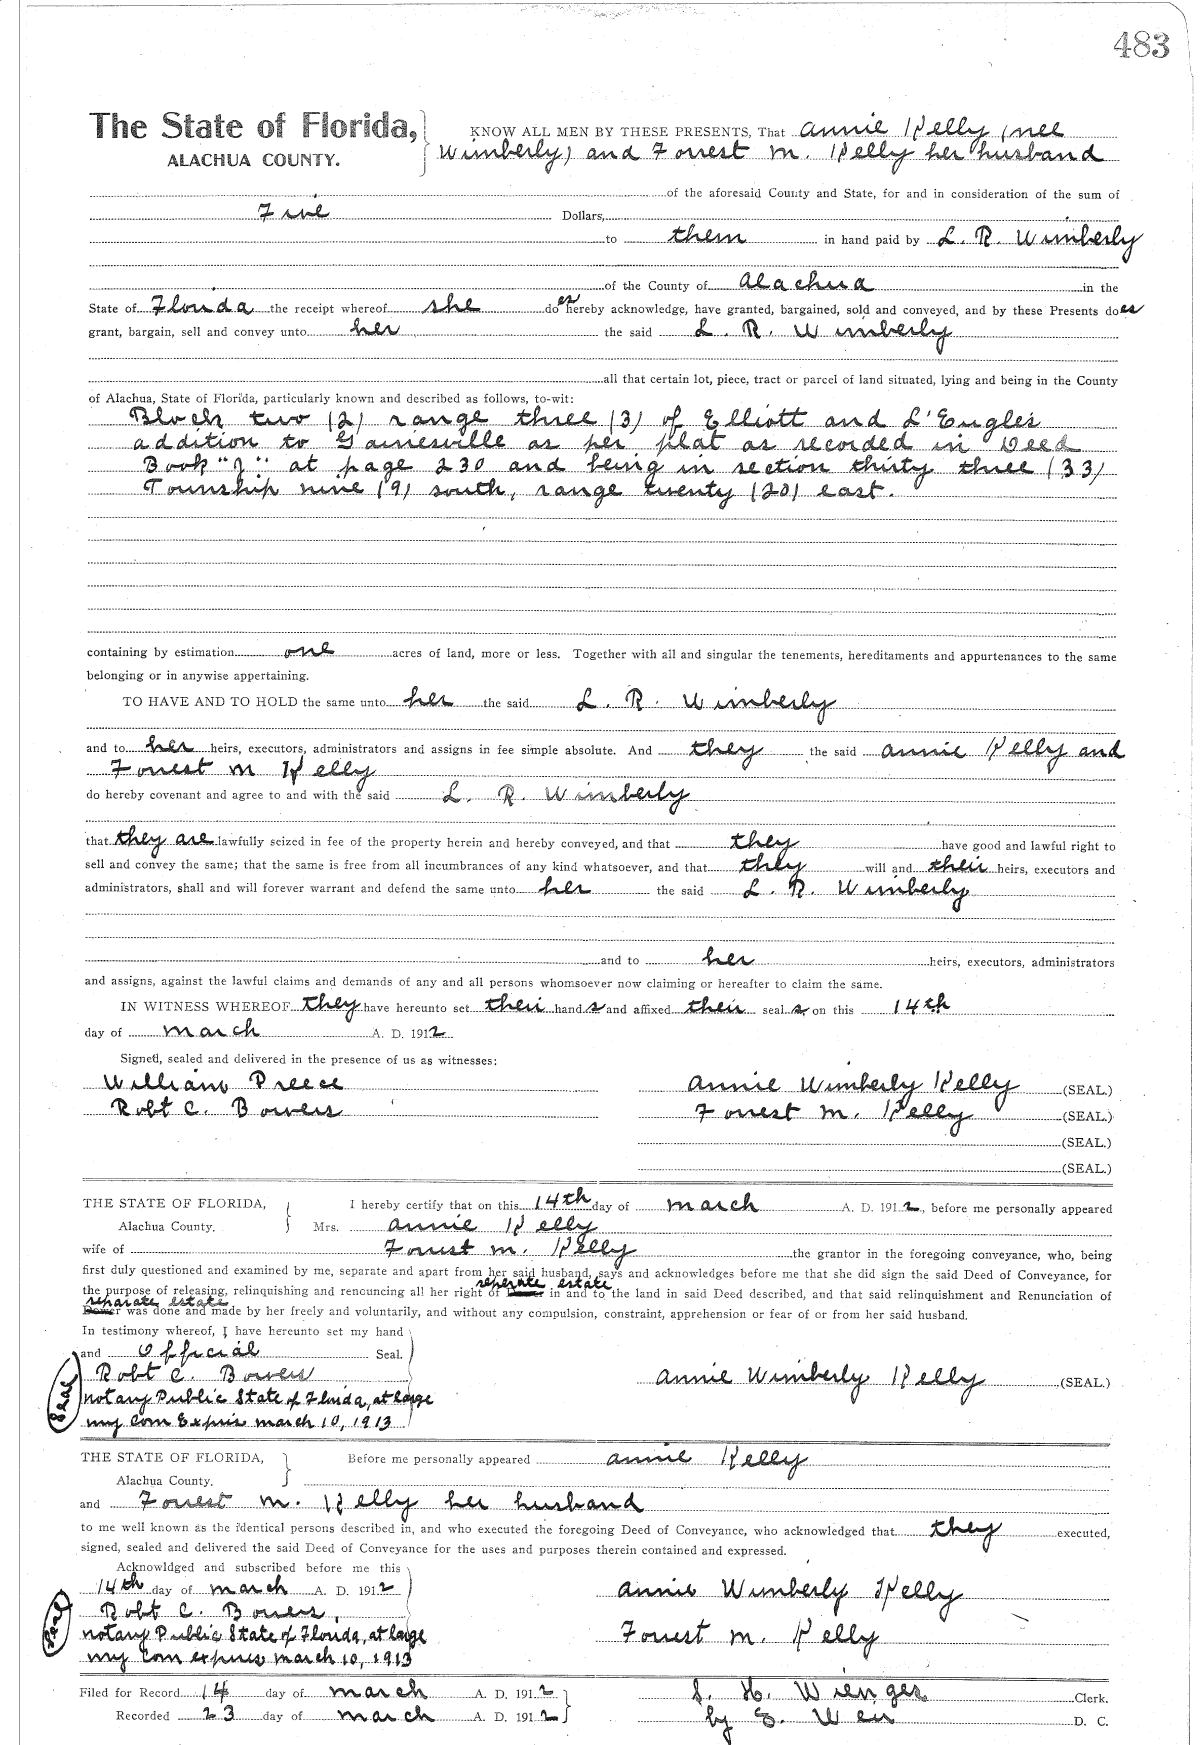 483
The State of Florida,
ALACHUA COUNTY.
KNOW ALL MEN BY THESE PRESENTS, That Annie Kelly (nee
Wimberly) and Forrest M. Kelly her husband
of the aforesaid County and State, for and in consideration of the sum of
Five Dollars,
to them in hand paid by L. R. Wimberly
of the County of Alachua in the
State of Florida the receipt whereof she do es hereby acknowledge, have granted, bargained, sold and conveyed, and by these Presents do es
grant, bargain, sell and convey unto her the said L. R. Wimberly
all that certain lot, piece, tract or parcel of land situated, lying and being in the County
of Alachua, State of Florida, particularly known and described as follows, to-wit:
Block two (2) range three (3) of Elliott and L'Engles
addition to Gainesville as per plat as recorded in Deed
Book "J" at page 230 and being in section thirty three (33)
Township nine (9) south, range twenty (20) east.
containing by estimation one acres of land, more or less. Together with all and singular the tenements, hereditaments and appurtenances to the same
belonging or in anywise appertaining.
TO HAVE AND TO HOLD the same unto her the said L. R. Wimberly
and to her heirs, executors, administrators and assigns in fee simple absolute. And they the said Annie Kelly and
Forrest M Kelly
do hereby covenant and agree to and with the said L. R. Wimberly
that they are lawfully seized in fee of the property herein and hereby conveyed, and that they have good and lawful right to
sell and convey the same; that the same is free from all incumbrances of any kind whatsoever, and that they will and their heirs, executors and
administrators, shall and will forever warrant and defend the same unto her the said L. R. Wimberly
and to her heirs, executors, administrators
and assigns, against the lawful claims and demands of any and all persons whomsoever now claiming or hereafter to claim the same.
IN WITNESS WHEREOF they have hereunto set their hand s and affixed their seal s on this 14th
day of March A. D. 1912
Signed, sealed and delivered in the presence of us as witnesses:
William Preece Annie Wimberly Kelly (SEAL.)
Robt C. Bowers Forrest M. Kelly (SEAL.)
(SEAL.)
(SEAL.)
THE STATE OF FLORIDA, I hereby certify that on this 14th day of March A. D. 1912, before me personally appeared
Alachua County. Mrs. Annie Kelly
wife of Forrest M. Kelly the grantor in the foregoing conveyance, who, being
first duly questioned and examined by me, separate and apart from her said husband, says and acknowledges before me that she did sign the said Deed of Conveyance, for
the purpose of releasing, relinquishing and renouncing all her right of Dower seperate estate in and to the land in said Deed described, and that said relinquishment and Renunciation of
separate estate Dower was done and made by her freely and voluntarily, and without any compulsion, constraint, apprehension or fear of or from her said husband.
In testimony whereof, I have hereunto set my hand
and Official Seal.
Robt C. Bowers Annie Wimberly Kelly (SEAL.)
Seal
Notary Public State of Florida, at large
my Com Expires March 10, 1913
THE STATE OF FLORIDA, Before me personally appeared Annie Kelly
Alachua County.
and Forrest M. Kelly her husband
to me well known as the identical persons described in, and who executed the foregoing Deed of Conveyance, who acknowledged that they executed,
signed, sealed and delivered the said Deed of Conveyance for the uses and purposes therein contained and expressed.
Acknowldged and subscribed before me this
14th day of March A. D. 1912 Annie Wimberly Kelly
Robt C. Bowers,
Seal
Notary Public State of Florida, at large Forrest M. Kelly
my Com expires March 10, 1913
Filed for Record 14 day of March A. D. 1912 S. H. Wienges Clerk.
Recorded 23 day of March A. D. 1912 by E. Weir D. C.